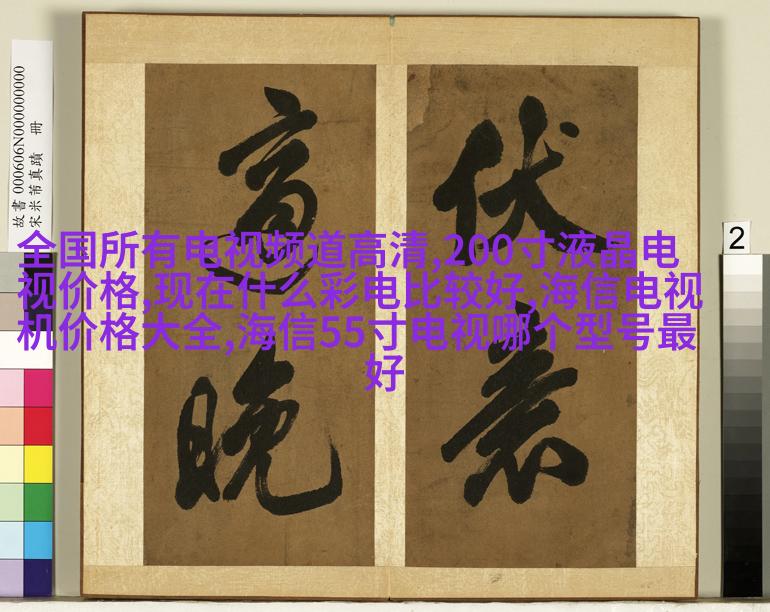 故書 000606N000000000
宋米芾真蹟 冊
伏
衰
高
晚
全国所有电视频道高清,200寸液晶电
视价格,现在什么彩电比较好,海信电视
机价格大全,海信55寸电视哪个型号最
好
2